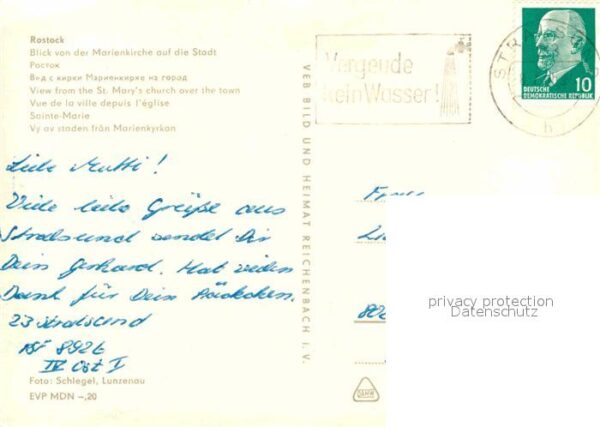 Rostock
Blick von der Marienkirche auf die Stadt
Росток
Вид с кирки Мариенкирхе на город
View from the St. Mary's church over the town
Vue de la ville depuis l'église
Sainte-Marie
Vy av staden från Marienkyrkan
Liebe Mutti!
Viele liebe Grüße aus
Stralsund sendet Dir
Dein Gerhard. Hat vielen
Dank für Dein Päckchen.
23 Stralsund
PSF 892E
IV Ost I
Foto: Schlegel, Lunzenau
EVP MDN –,20
VEB BILD UND HEIMAT REICHENBACH I. V.
Vergeude
kein Wasser!
STR
h
10
DEUTSCHE
DEMOKRATISCHE REPUBLIK
Frau
802
privacy protection
Datenschutz